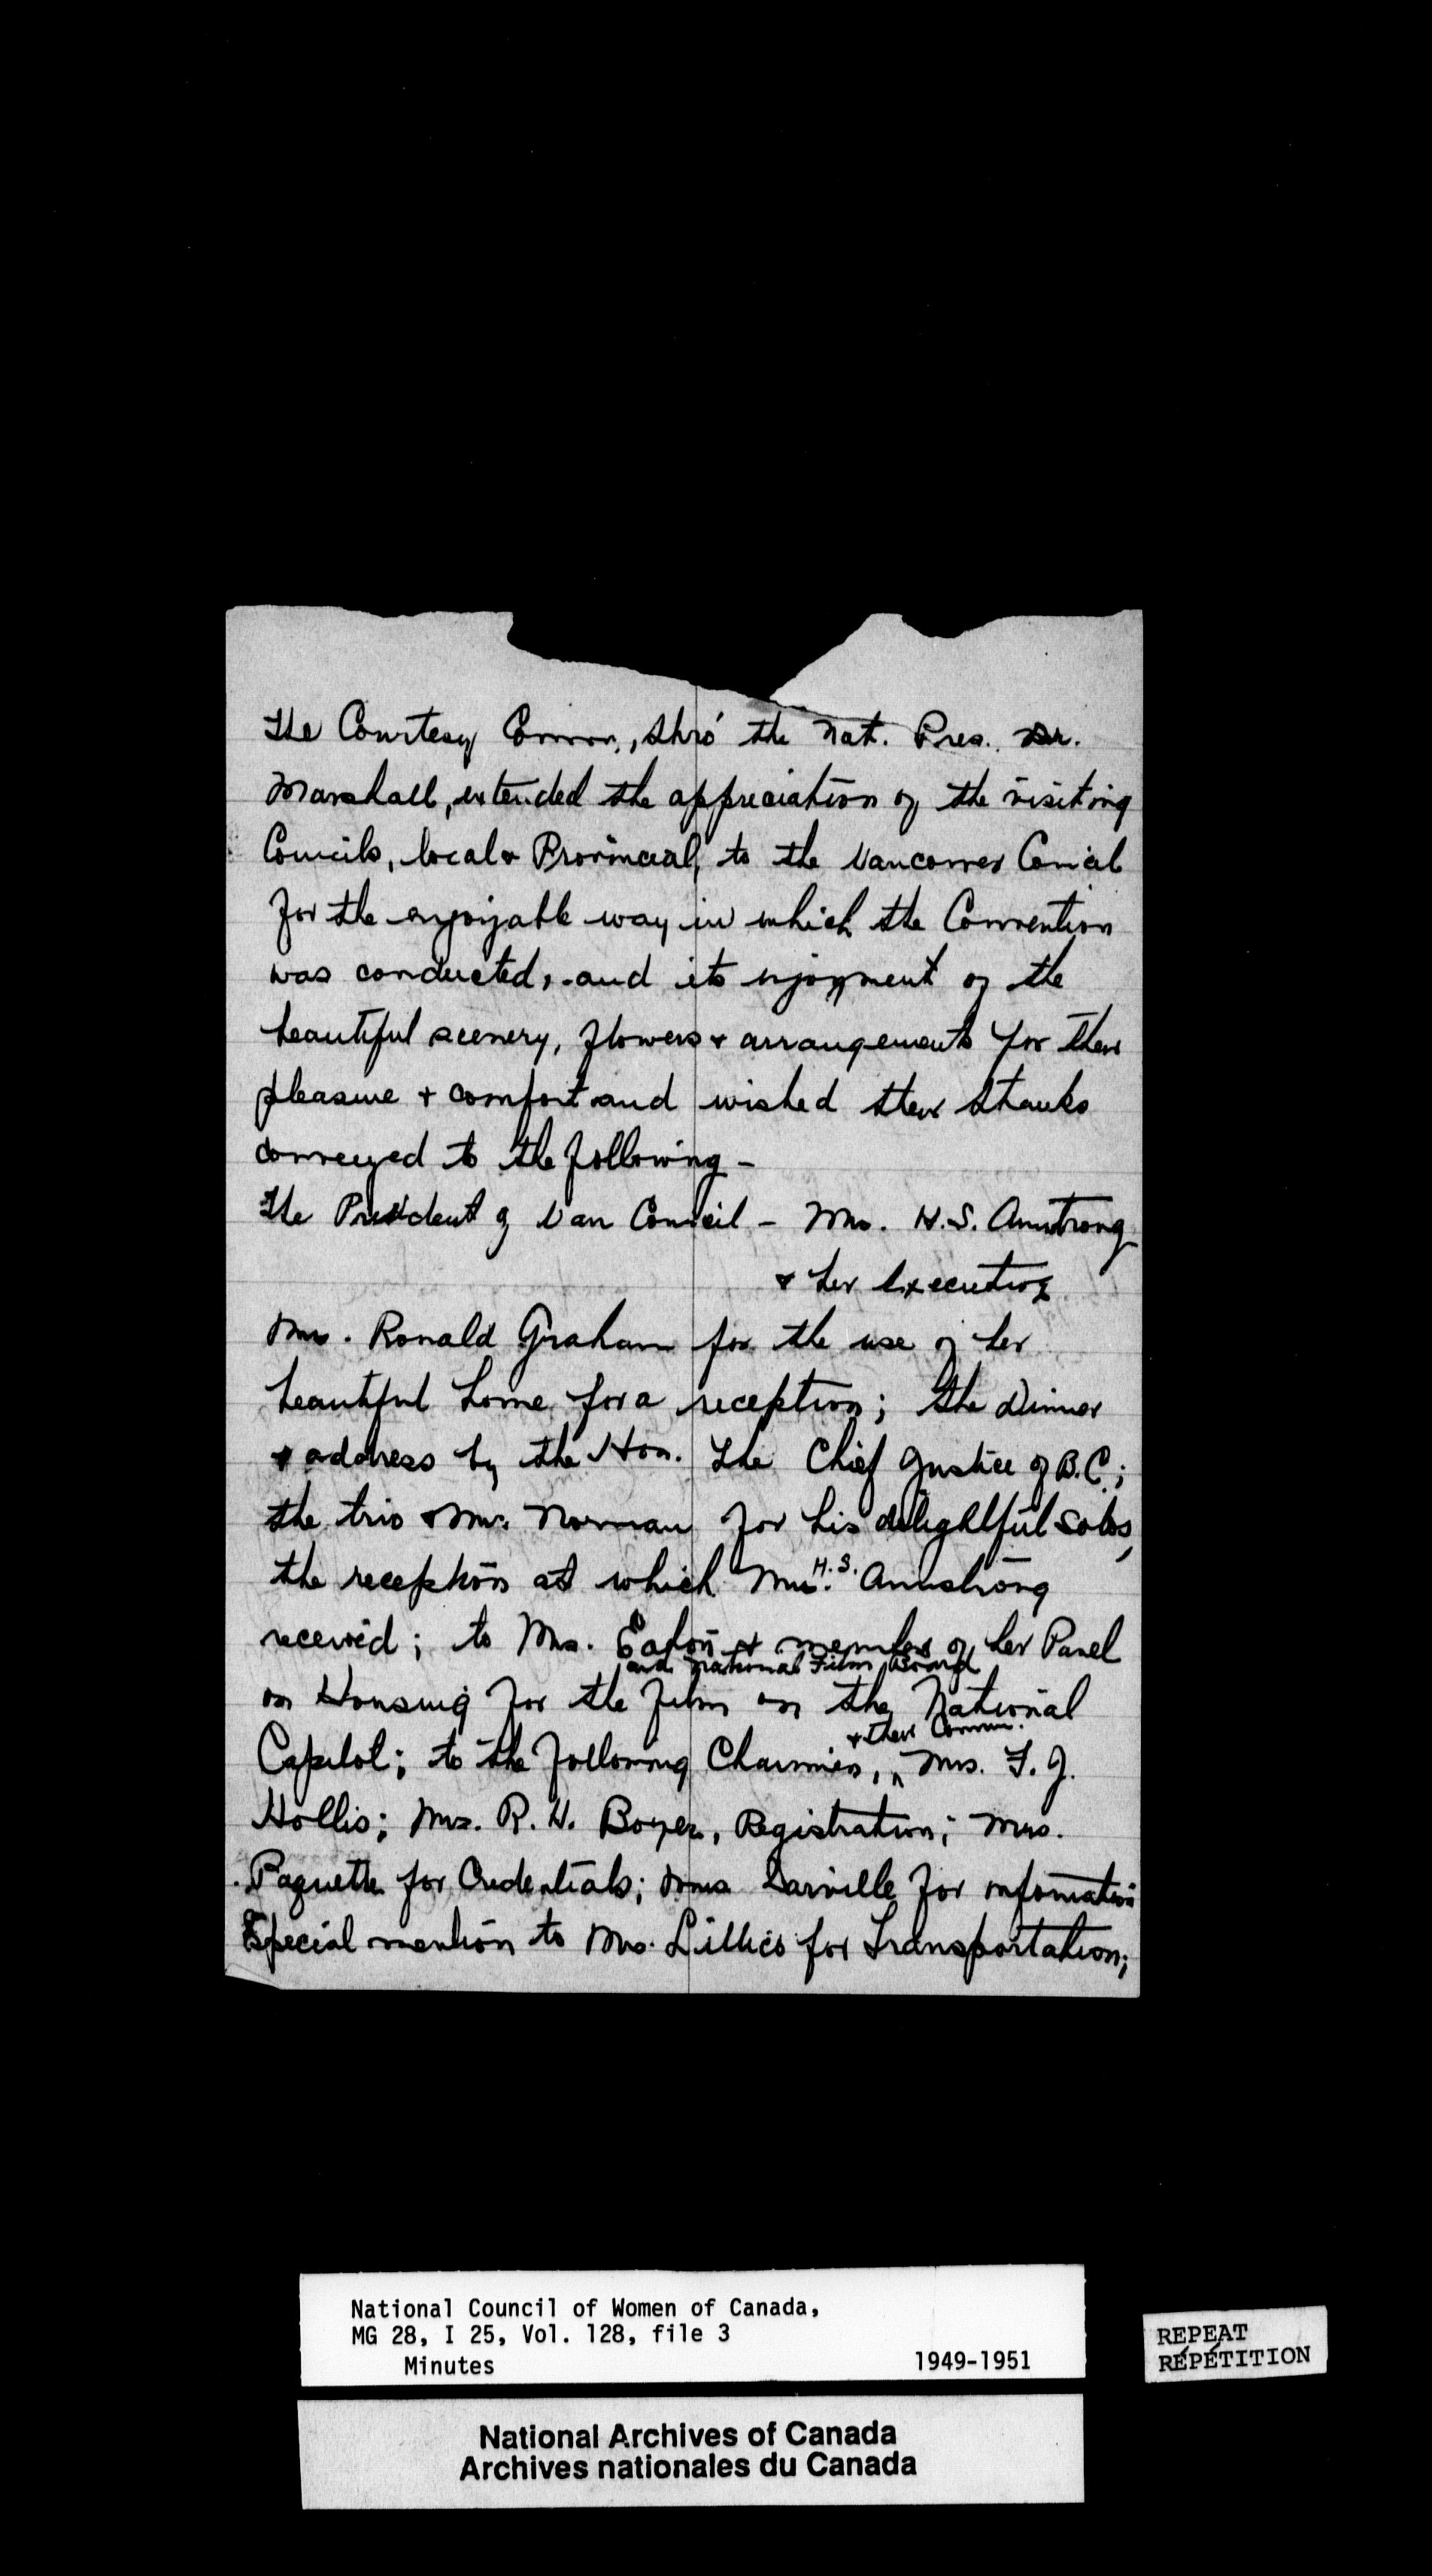 The Courtesy Comm., thro' the Nat. Pres. Dr.
Marshall, extended the appreciation of the visiting
Councils, local & Provincial, to the Vancouver Concil
for the enjoyable way in which the Convention
was conducted, and its enjoyment of the
beautiful scenery, flowers & arrangements for their
pleasure + comfort and wished their thanks
conveyed to the following -
The President of Van Council - Mrs. H.S. Armstrong
& her executive
Mrs. Ronald Graham for the use of her
beautiful home for a reception; the Dinner
& address by the Hon. the Chief Justice of B.C.;
the trio & Mr. Norman for his delightful solos,
the reception at which Mrs. H.S. Armstrong
received; to Mrs. Eaton & members of her Panel
and National Film Board
on Housing for the film on the National
Capitol; to the following Chairmen,
& their Comm.
Mrs. F. J.
Hollis; Mrs. R. H. Boyer, Registration; Mrs.
Paquette for Credentials; Mrs Darville for information
Special mention to Mrs. Lillies for Transportation;
National Council of Women of Canada,
MG 28, I 25, Vol. 128, file 3
Minutes 1949-1951
REPEAT
RÉPÉTITION
National Archives of Canada
Archives nationales du Canada